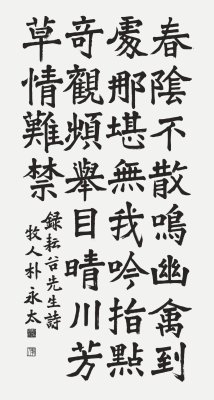 春陰不散鳴幽禽到
處那堪無我吟指點
奇觀頻擧目晴川芳
草情難禁
錄耘谷先生詩
牧人朴永太